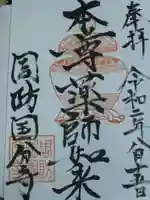 奉拝
令和二年八月十五日
本尊薬師如来
周防国分寺